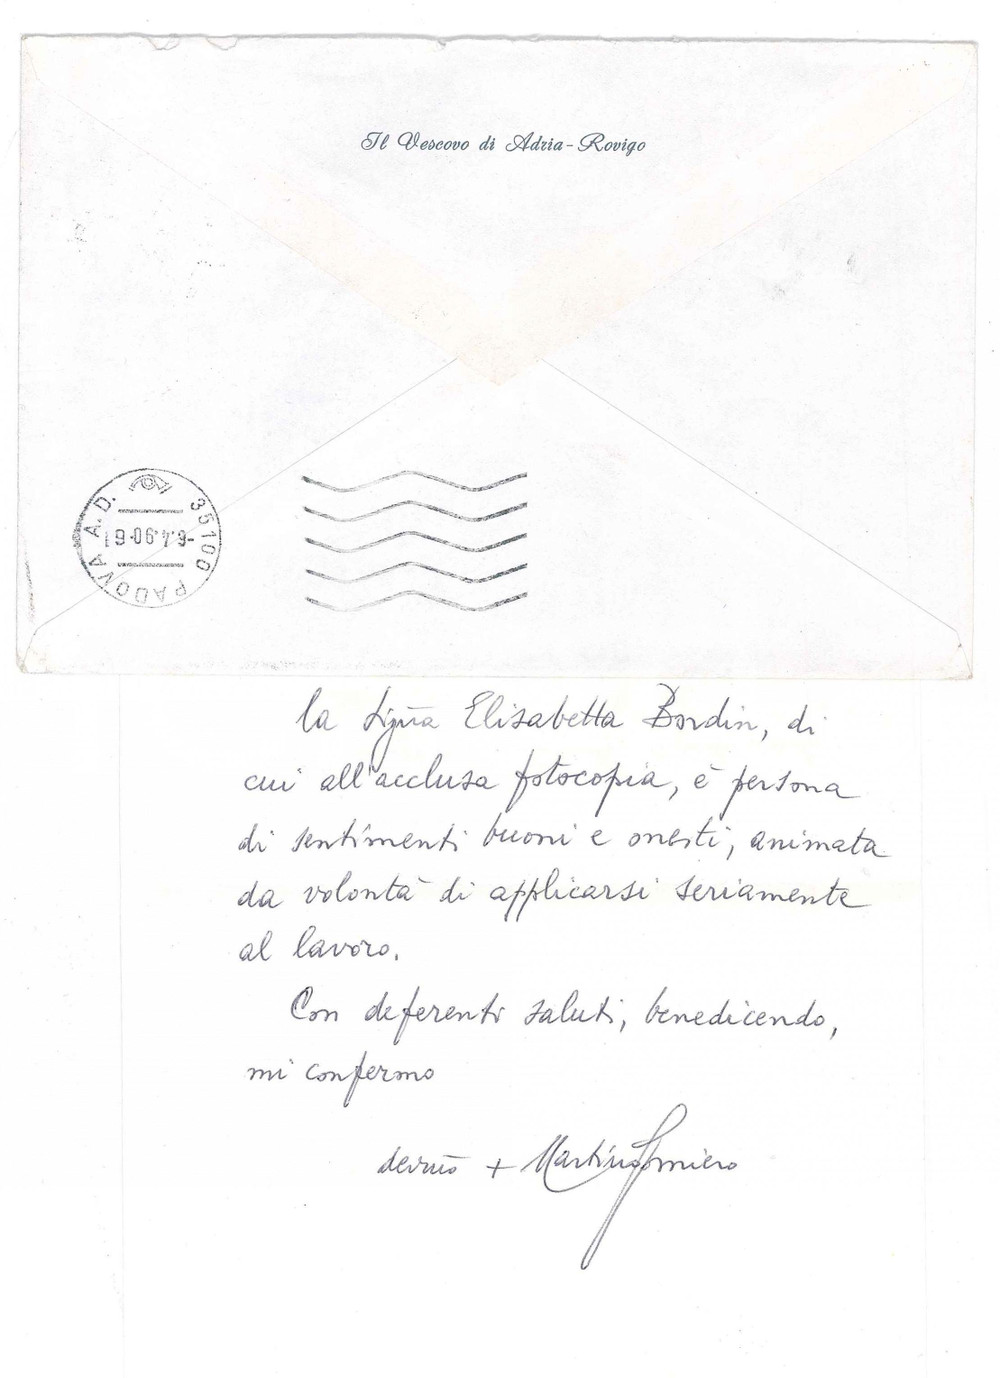 Il Vescovo di Adria-Rovigo
35100 PADOVA A.D.
-6.4.90-61
la Sig̃na Elisabetta Bordin, di
cui all'acclusa fotocopia, è persona
di sentimenti buoni e onesti, animata
da volontà di applicarsi seriamente
al lavoro.
Con deferenti saluti, benedicendo,
mi confermo
+ Martino Gomiero